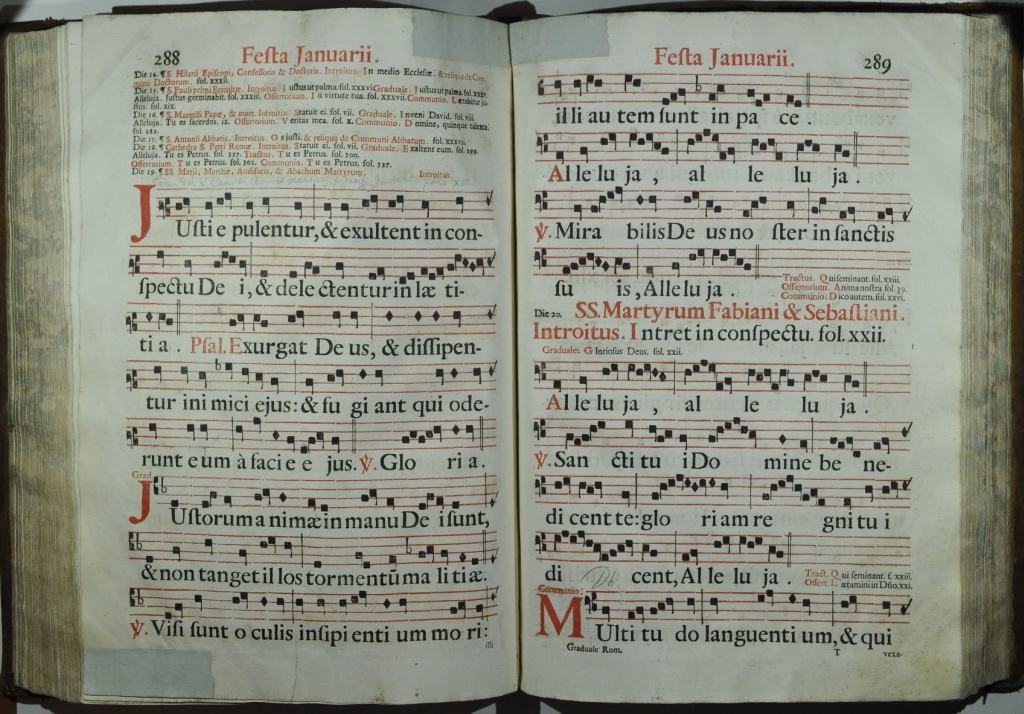 288
Festa Januarii.
Die 14. ¶ S. Hilarii Episcopi, Confessoris & Doctoris. Introitus. In medio Ecclesiæ. & reliqua de Com-
muni Doctorum. fol. xxxii.
Die 15. ¶ S. Pauli primi Eremitæ. Introitus. Justus ut palma. fol. xxxvi Graduale. Justus ut palma. fol. xxxv.
Alleluja. Justus germinabit. fol. xxxiii. Offertorium. In virtute tua. fol. xxxvii. Communio. Lætabitur ju-
stus. fol. xix.
Die 16. ¶ S. Marcelli Papæ, & mart. Introitus. Statuit ei. fol. vii. Graduale. Inveni David. fol. vii.
Alleluja. Tu es sacerdos. ix. Offertorium. Veritas mea. fol. x. Communio. Domine, quinque talenta.
fol. 282.
Die 17. ¶ S. Antonii Abbatis. Introitus. Os justi. & reliqua de Communi Abbatum. fol. xxxvii.
Die 18. ¶ Cathedra S. Petri Romæ. Introitus. Statuit ei. fol. vii. Graduale. Exaltent eum. fol. 299.
Alleluja. Tu es Petrus. fol. 327. Tractus. Tu es Petrus. fol. 300.
Offertorium. Tu es Petrus. fol. 301. Communio. Tu es Petrus. fol. 327.
Die 19. ¶ SS. Marii, Marthæ, Audifacis, & Abachum Martyrum. Introitus.
JUsti e pulentur, & exultent in con-
spectu De i, & dele ctentur in læ ti-
ti a . Psal. Exurgat De us, & dissipen-
tur ini mici ejus: & fu gi ant qui ode-
runt e um à faci e e jus. ℣. Glo ri a.
Grad.
JUstorum a nimæ in manu De i sunt,
& non tanget il los tormentū ma li tiæ.
℣. Visi sunt o culis insipi enti um mo ri:
illi
Festa Januarii.
289
illi au tem sunt in pa ce .
Al le lu ja , al le lu ja .
℣. Mira bilis De us no ster in sanctis
su is, Alle lu ja .
Tractus. Qui seminant. fol. xxiii.
Offertorium. Anima nostra. fol. 39.
Communio. Dico autem. fol. xxvi.
Die 20. SS. Martyrum Fabiani & Sebastiani.
Introitus. Intret in conspectu. fol. xxii.
Graduale. Gloriosus Deus. fol. xxii.
Al le lu ja , al le lu ja .
℣. San cti tu i Do mine be ne-
di cent te: glo ri am re gni tu i
di cent, Al le lu ja .
Tract. Qui seminant. f. xxiii.
Offert. Lætamini in Dño. xxi.
Communio:
MUlti tu do languenti um, & qui
Graduale Rom. T vexa-